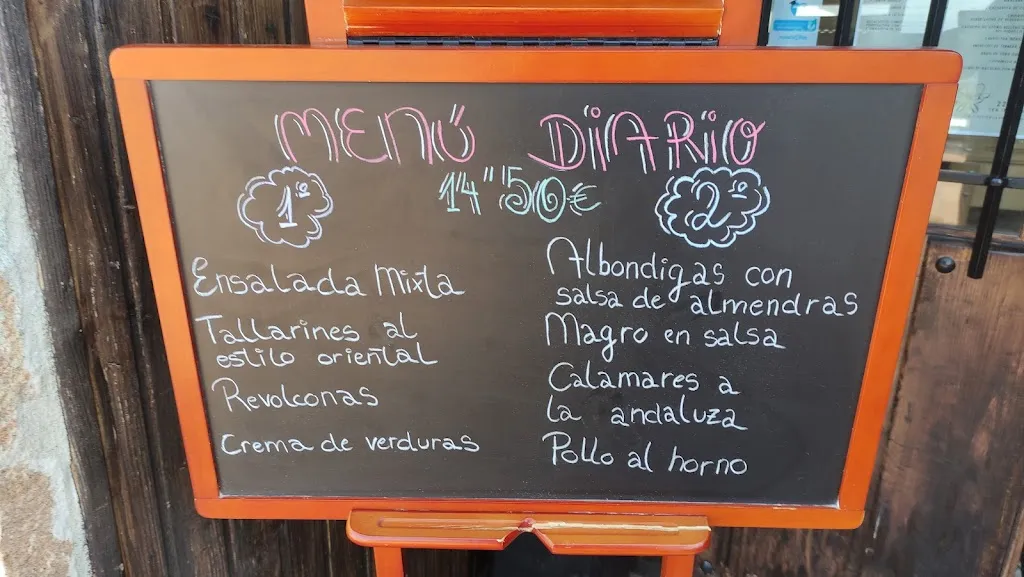 MENÚ DIARIO
14"50€
1º
Ensalada Mixta
Tallarines al
estilo oriental
Revolconas
Crema de verduras
2º
Albondigas con
salsa de almendras
Magro en salsa
Calamares a
la andaluza
Pollo al horno